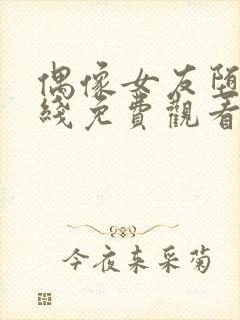 偶像女友堕
綫免費觀看
今夜来采菊